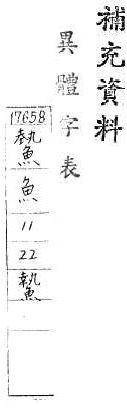 補充資料
異體字表
17658
魚
11
22
䲀